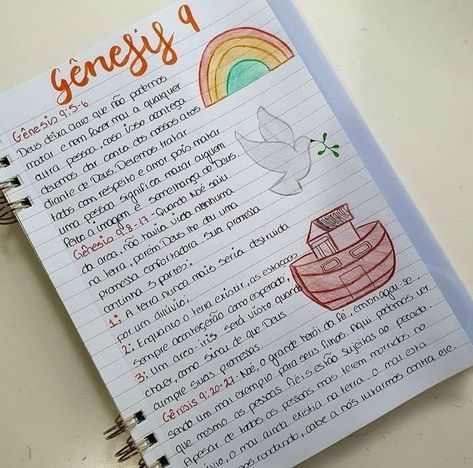 Gênesis 9
Gênesis 9:5-6
Deus deixa claro que não podemos
matar e nem fazer mal a qualquer
outra pessoa, caso isso aconteça
devemos dar conta dos nossos atos
diante de Deus. Devemos tratar
todos com respeito e amor pois matar
uma pessoa significa matar alguém
feito a imagem e semelhança de Deus
Gênesis 9:8-17 - Quando Noé saiu
da arca, não havia vida nenhuma
na terra, porém Deus lhe deu uma
promessa confortadora. Sua promessa
continha 3 partes:
1: A terra nunca mais seria destruída
por um dilúvio;
2: Enquanto a terra existir, as estações
sempre acontecerão como esperado;
3: Um arco-íris será visto quando
chover, como sinal de que Deus
cumpre suas promessas
Gênesis 9:20-27 Noé, o grande herói da fé, embriagou-se
sendo um mau exemplo para seus filhos. Aqui podemos ver
que mesmo as pessoas fiéis estão sujeitas ao pecado.
Apesar de todas as pessoas más terem morrido no
dilúvio, o mal ainda existia na terra... o mal está
nos rondando, cabe a nós lutarmos contra ele.